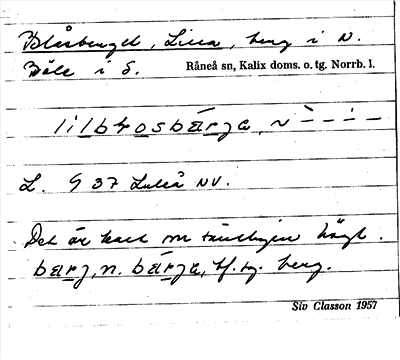 Blåsberget, Lilla, berg i N.
Böle i S. Råneå sn, Kalix doms. o. tg. Norrb. l.
lilbrosbärja, ~ ` – ´ –
L. 9 37 Luleå NV.
Det är kart om höjd.
bärj, n. bärja, bf. sg. berg.
Siv Classon 1957